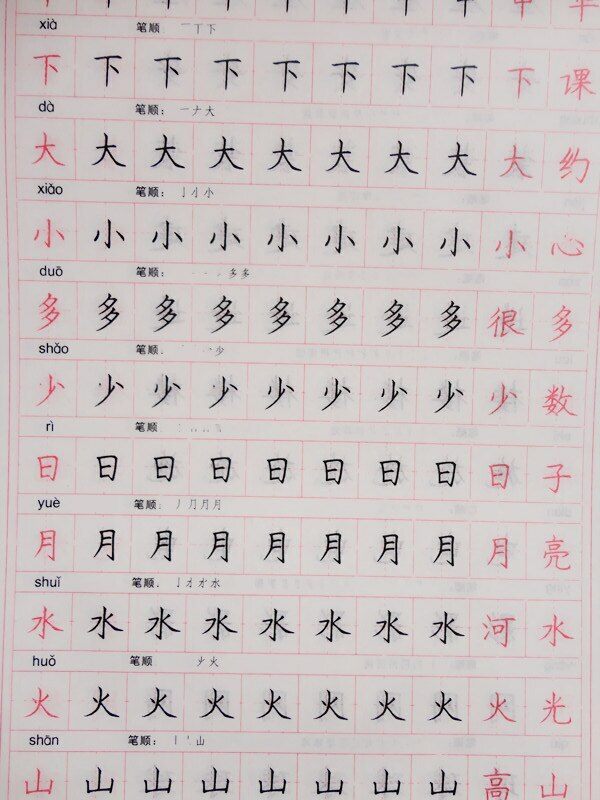 xià 笔顺: 一丅下
下 下 下 下 下 下 下 下 下 课
dà 笔顺: 一ナ大
大 大 大 大 大 大 大 大 大 约
xiǎo 笔顺: 亅小小
小 小 小 小 小 小 小 小 小 心
duō 笔顺: 多多
多 多 多 多 多 多 多 多 很 多
shǎo 笔顺. 少
少 少 少 少 少 少 少 少 少 数
rì 笔顺
日 日 日 日 日 日 日 日 日 子
yuè 笔顺. 丿⺆月月
月 月 月 月 月 月 月 月 月 亮
shuǐ 笔顺. 水
水 水 水 水 水 水 水 水 河 水
huǒ 笔顺 火
火 火 火 火 火 火 火 火 火 光
shān 笔顺: 山
山 山 山 山 山 山 山 山 高 山